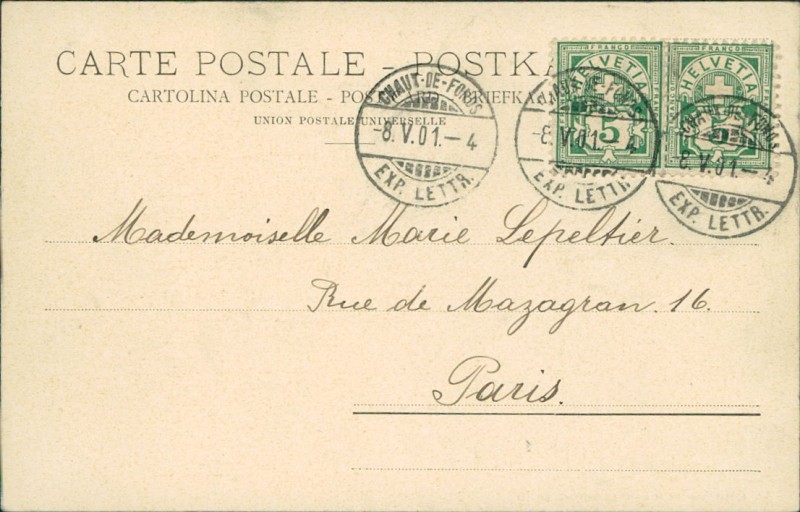 CARTE POSTALE - POSTKA
CARTOLINA POSTALE - POS
RIEFKA
UNION POSTALE UNIVERSELLE
FRANCO
HELVETIA
5
FRANCO
HELVETIA
CHAUX-DE-FONDS
-8.V.01.-4
EXP. LETTR.
-8.V.01.-4
EXP. LETTR.
8.V.01.-4
EXP. LETTR.
Mademoiselle Marie Lepeltier.
Rue de Mazagran. 16.
Paris.